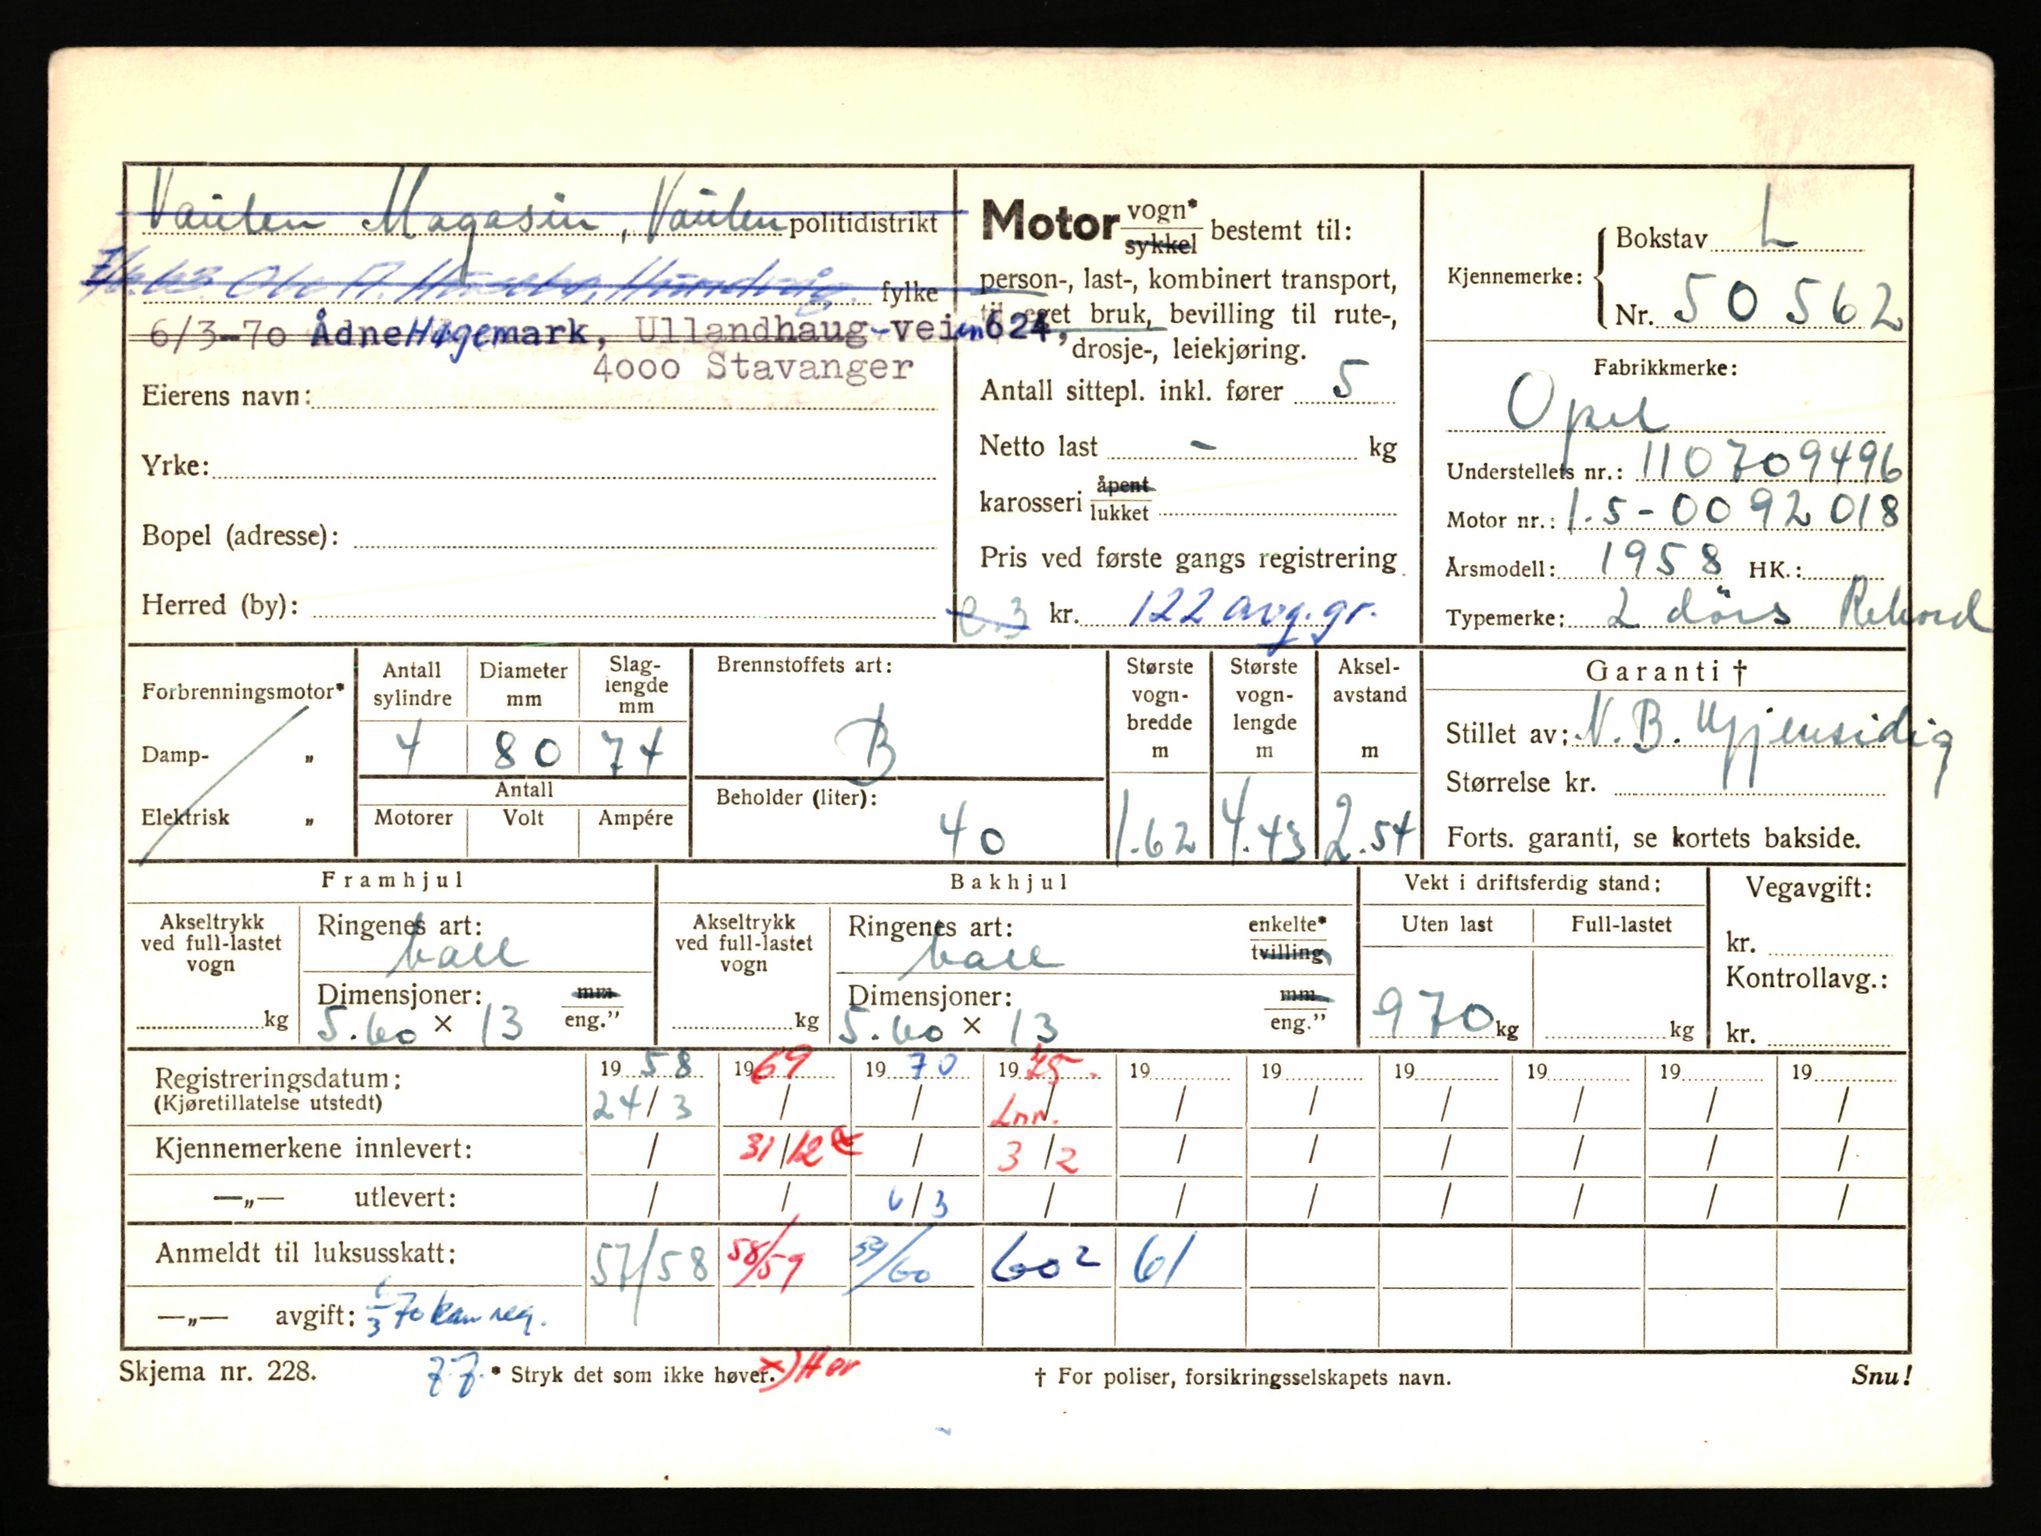 Vaulen Magasin, Vaulen politidistrikt
fylke
6/3-70 Ådne Hagemark, Ullandhaug-veien 624,
4000 Stavanger
Eierens navn:
Yrke:
Bopel (adresse):
Herred (by):
Motor vogn* sykkel bestemt til:
person-, last-, kombinert transport,
til eget bruk, bevilling til rute-,
drosje-, leiekjøring.
Antall sittepl. inkl. fører 5
Netto last - kg
karosseri åpent lukket
Pris ved første gangs registrering
kr. 122 avg.gr.
Kjennemerke: Bokstav L
Nr. 50562
Fabrikkmerke:
Opel
Understellets nr.: 110709496
Motor nr.: 1.5-0092018
Årsmodell: 1958 HK.:
Typemerke: 2 dørs Rekord
Forbrenningsmotor*
Damp- „
Elektrisk „
Antall sylindre 4
Diameter mm 80
Slag-lengde mm 74
Antall
Motorer Volt Ampére
Brennstoffets art:
B
Beholder (liter):
40
Største vogn-bredde m 1.62
Største vogn-lengde m 4.43
Aksel-avstand m 2.54
Garanti †
Stillet av: N.B. Gjensidig
Størrelse kr.
Forts. garanti, se kortets bakside.
Framhjul
Akseltrykk ved full-lastet vogn
kg
Ringenes art:
ball
Dimensjoner: mm eng.”
5.60 × 13
Bakhjul
Akseltrykk ved full-lastet vogn
kg
Ringenes art: enkelte* tvilling
ball
Dimensjoner: mm eng.”
5.60 × 13
Vekt i driftsferdig stand:
Uten last Full-lastet
970 kg kg
Vegavgift:
kr.
Kontrollavg.:
kr.
Registreringsdatum: 1958 1969 1970 1975. 19 19 19 19 19 19
(Kjøretillatelse utstedt) 24/3 / / Inn. / / / / / / /
Kjennemerkene innlevert: / 31/12 / 3/2 / / / / / /
—„— utlevert: / / 6/3 / / / / / / /
Anmeldt til luksusskatt: 57/58 58/59 59/60 60² 61
—„— avgift: 6/3 70 kan reg.
Skjema nr. 228.
* Stryk det som ikke høver.
† For poliser, forsikringsselskapets navn.
Snu!